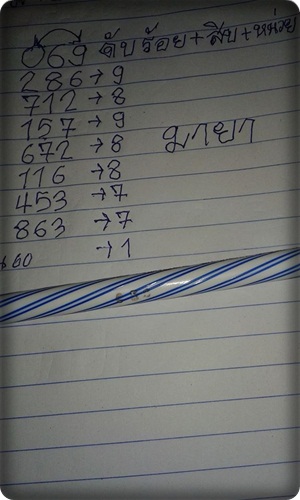 069 ดับร้อย+สิบ+หน่วย
286→9
712→8
157→9
672→8
มายา
116→8
453→7
863→7
60→1